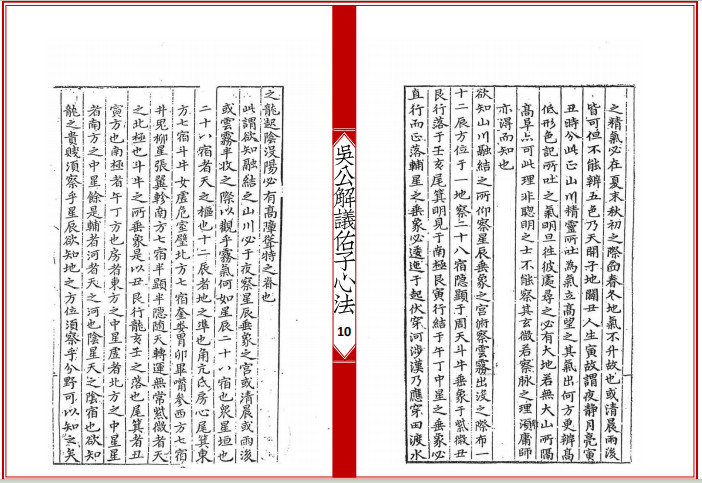 之精氣必在夏末秋初之際向春冬地氣不升故也或清晨雨後
皆可但不能辨五色乃天開子地闢丑人生寅故謂夜静月亮寅
丑時分此正山川精靈所吐為氣立高望之其氣出何方更辨高
低形色記所吐之氣明旦徃彼處尋之必有大地若無大山所隔
高阜亦可此理非聰明之士不能察其玄微若察脉之理須庸師
亦得而知也
欲知山川融結之所仰察星辰垂象之宮俯察雲霧出没之際布一
十二辰方位于一地察二十八宿隱顯于周天斗牛垂象于紫微丑
艮行落于壬亥尾箕明見于南極艮寅行結于午丁中星之垂象必
直行而正落輔星之垂象必逶迤于起伏穿河涉漢乃應穿田渡水
吳公解議佑子心法
10
之龍起陰没陽必有高陣聳特之脊也
此謂欲知融結之山川必于夜察星辰垂象之宮或清晨或雨後
或雲霧半收之際以觀乎霧氣何如星辰二十八宿也衆星垣也
二十八宿者天之樞也十二辰者地之準也角亢氐房心尾箕東
方七宿斗牛女虛危室壁北方七宿奎婁胃卯畢嘴參西方七宿
井鬼柳星張翼軫南方七宿半顯半隱随天轉運無常紫微者天
之北極也斗牛之所垂象是以丑艮行龍亥壬之落也尾箕者丑
寅方也南極者午丁方也房者東方之中星虛者北方之中星星
者南方之中星餘是輔者河者天之河也陰星天之陰宿也欲知
龍之貴賤須察乎星辰欲知地之方位須察乎分野可以知之矣